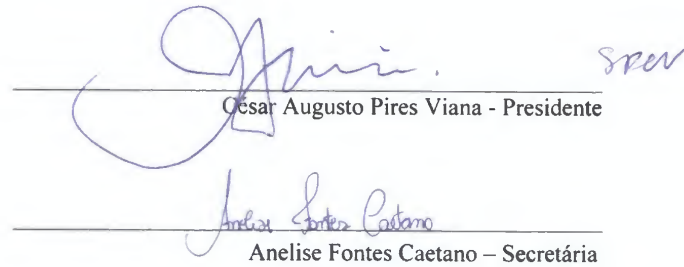 César Augusto Pires Viana - Presidente
Anelise Fontes Caetano
Anelise Fontes Caetano – Secretária